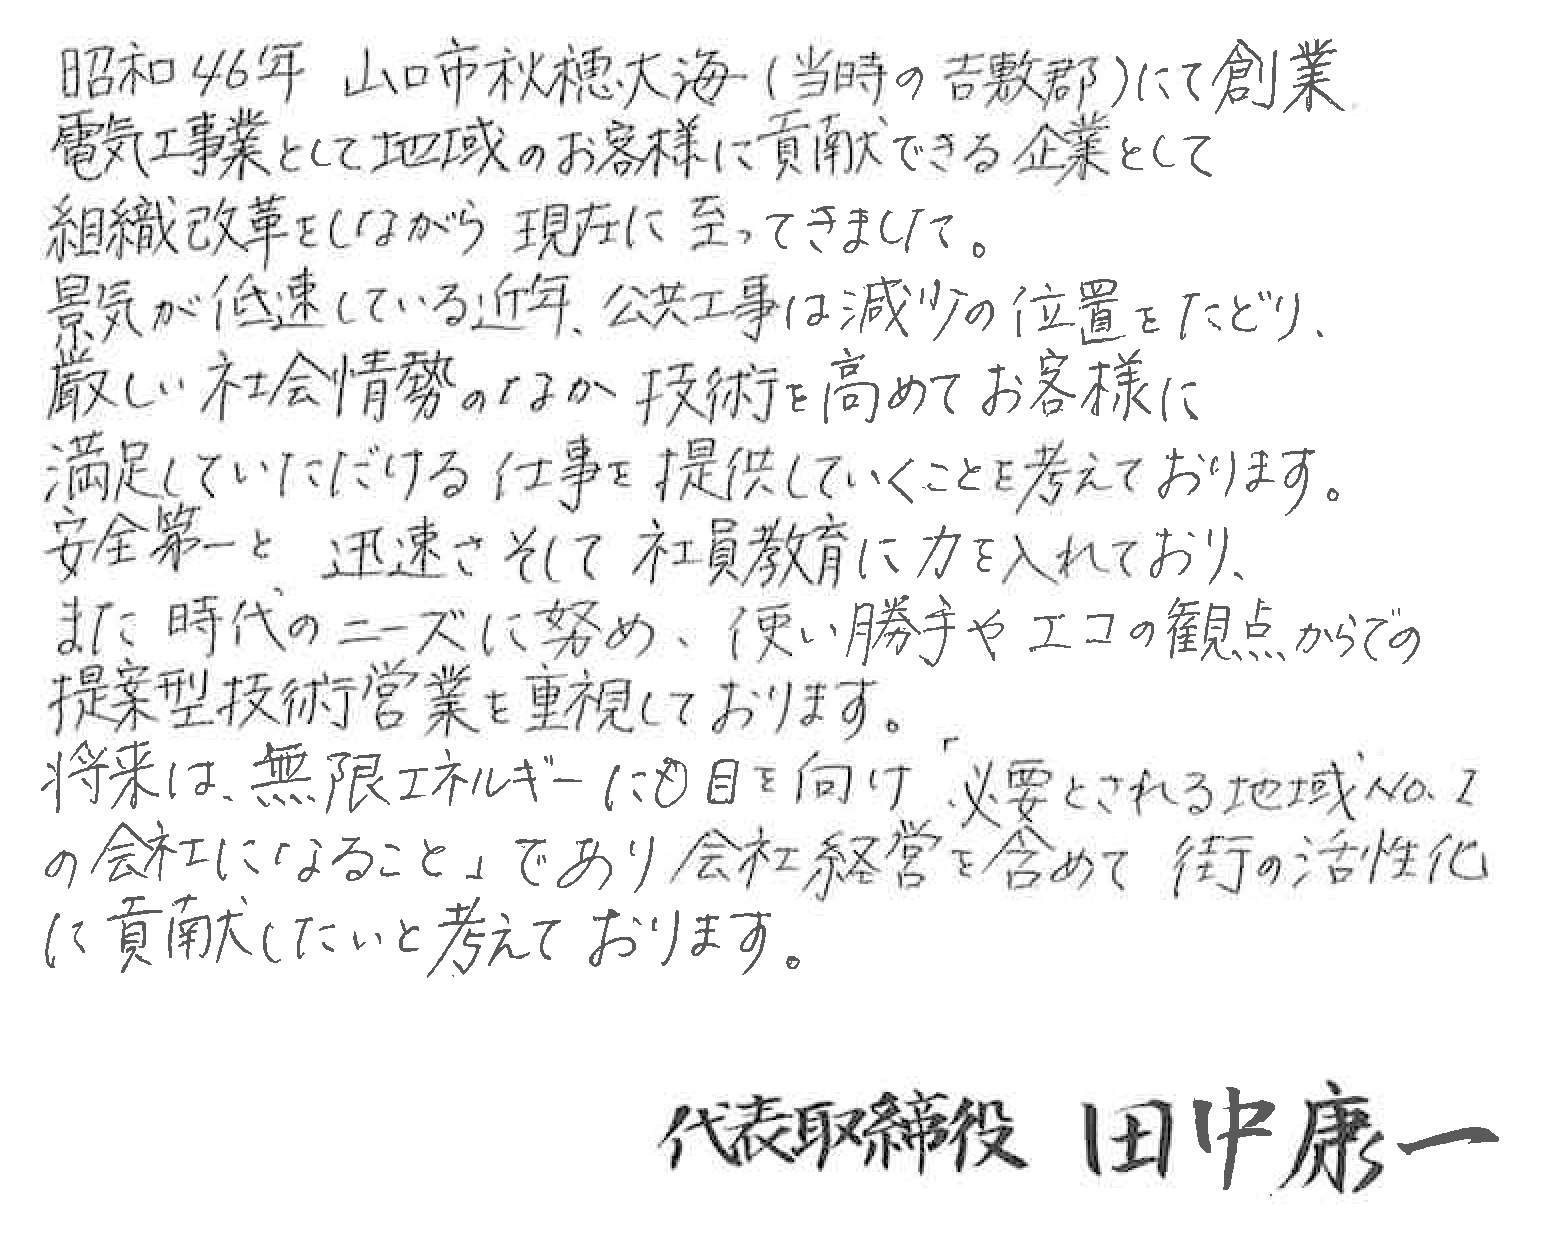 昭和46年 山口市秋穂大海(当時の吉敷郡)にて創業
電気工事業として地域のお客様に貢献できる企業として
組織改革をしながら 現在に至ってきました。
景気が低速している近年、公共工事は減少の位置をたどり、
厳しい社会情勢のなか 技術を高めてお客様に
満足していただける仕事を提供していくことを考えております。
安全第一と、迅速さそして社員教育に力を入れており、
また時代のニーズに努め、使い勝手やエコの観点からでの
提案型技術営業を重視しております。
将来は、無限エネルギーにも目を向け「必要とされる地域No.1
の会社になること」であり会社経営を含めて 街の活性化
に貢献したいと考えております。
代表取締役 田中康一